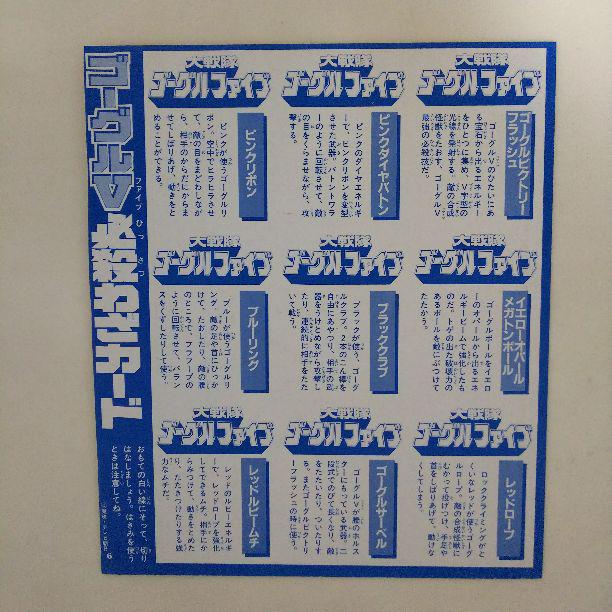 大戦隊
ゴーグルファイブ
ゴーグルビクトリー
フラッシュ
ゴーグルVのひたいにあ
る宝石から出るエネルギー
をひとつに集め、V字型の
光線を発射する。敵の合成
怪獣をたおす、ゴーグルV
最強の必殺技だ。
大戦隊
ゴーグルファイブ
ピンクダイヤバトン
ピンクのダイヤエネルギ
ーで、ピンクリボンを変型
させた武器。バトントワラ
ーのように回転させて、敵
の目をくらませながら、攻
撃する。
大戦隊
ゴーグルファイブ
ピンクリボン
ピンクが使うゴーグルリ
ボン。空中でヒラヒラさせ
て、敵の目をまどわしなが
ら、相手のからだにからま
せてしばりあげ、動きをと
めることができる。
大戦隊
ゴーグルファイブ
イエローオパール
メガトンボール
ゴーグルボールをイエロ
ーのオパールから出るエネ
ルギービームで強化したも
のだ。トゲの出た破壊力の
あるボールを敵にぶつけて
たたかう。
大戦隊
ゴーグルファイブ
ブラッククラブ
ブラックが使う、ゴーグ
ルクラブ。2本のこん棒を
自由にあやつり、相手の武
器をうけとめながら攻撃し
たり、連続的に相手をたた
いて戦う。
大戦隊
ゴーグルファイブ
ブルーリング
ブルーが使うゴーグルリ
ング。敵の足や首にひっか
けて、たおしたり、敵の腰
のところで、フラフープの
ように回転させて、バラン
スをくずしたりして使う。
大戦隊
ゴーグルファイブ
レッドロープ
ロッククライミングがと
くいなレッドが使うゴーグ
ルロープ。敵の合成怪獣に
むかって投げつけ、手足や
首をしばりあげて、動けな
くしてしまう。
大戦隊
ゴーグルファイブ
ゴーグルサーベル
ゴーグルVが腰のホルス
ターにもっている武器。二
段式でのびて長くなり、敵
をたたいたり、ついたりす
る。またゴーグルビクトリ
ーフラッシュの時に使う。
大戦隊
ゴーグルファイブ
レッドルビームチ
レッドのルビーエネルギ
ーで、レッドロープを強化
してできるムチ。相手にか
らみつけて、動きをとめた
り、たたきつけたりする強
力なムチだ。
ゴーグルV必殺わざカード
ファイブ ひっ さつ
おもての白い線にそって、切り
はなしましょう。はさみを使う
ときは注意してね。
6